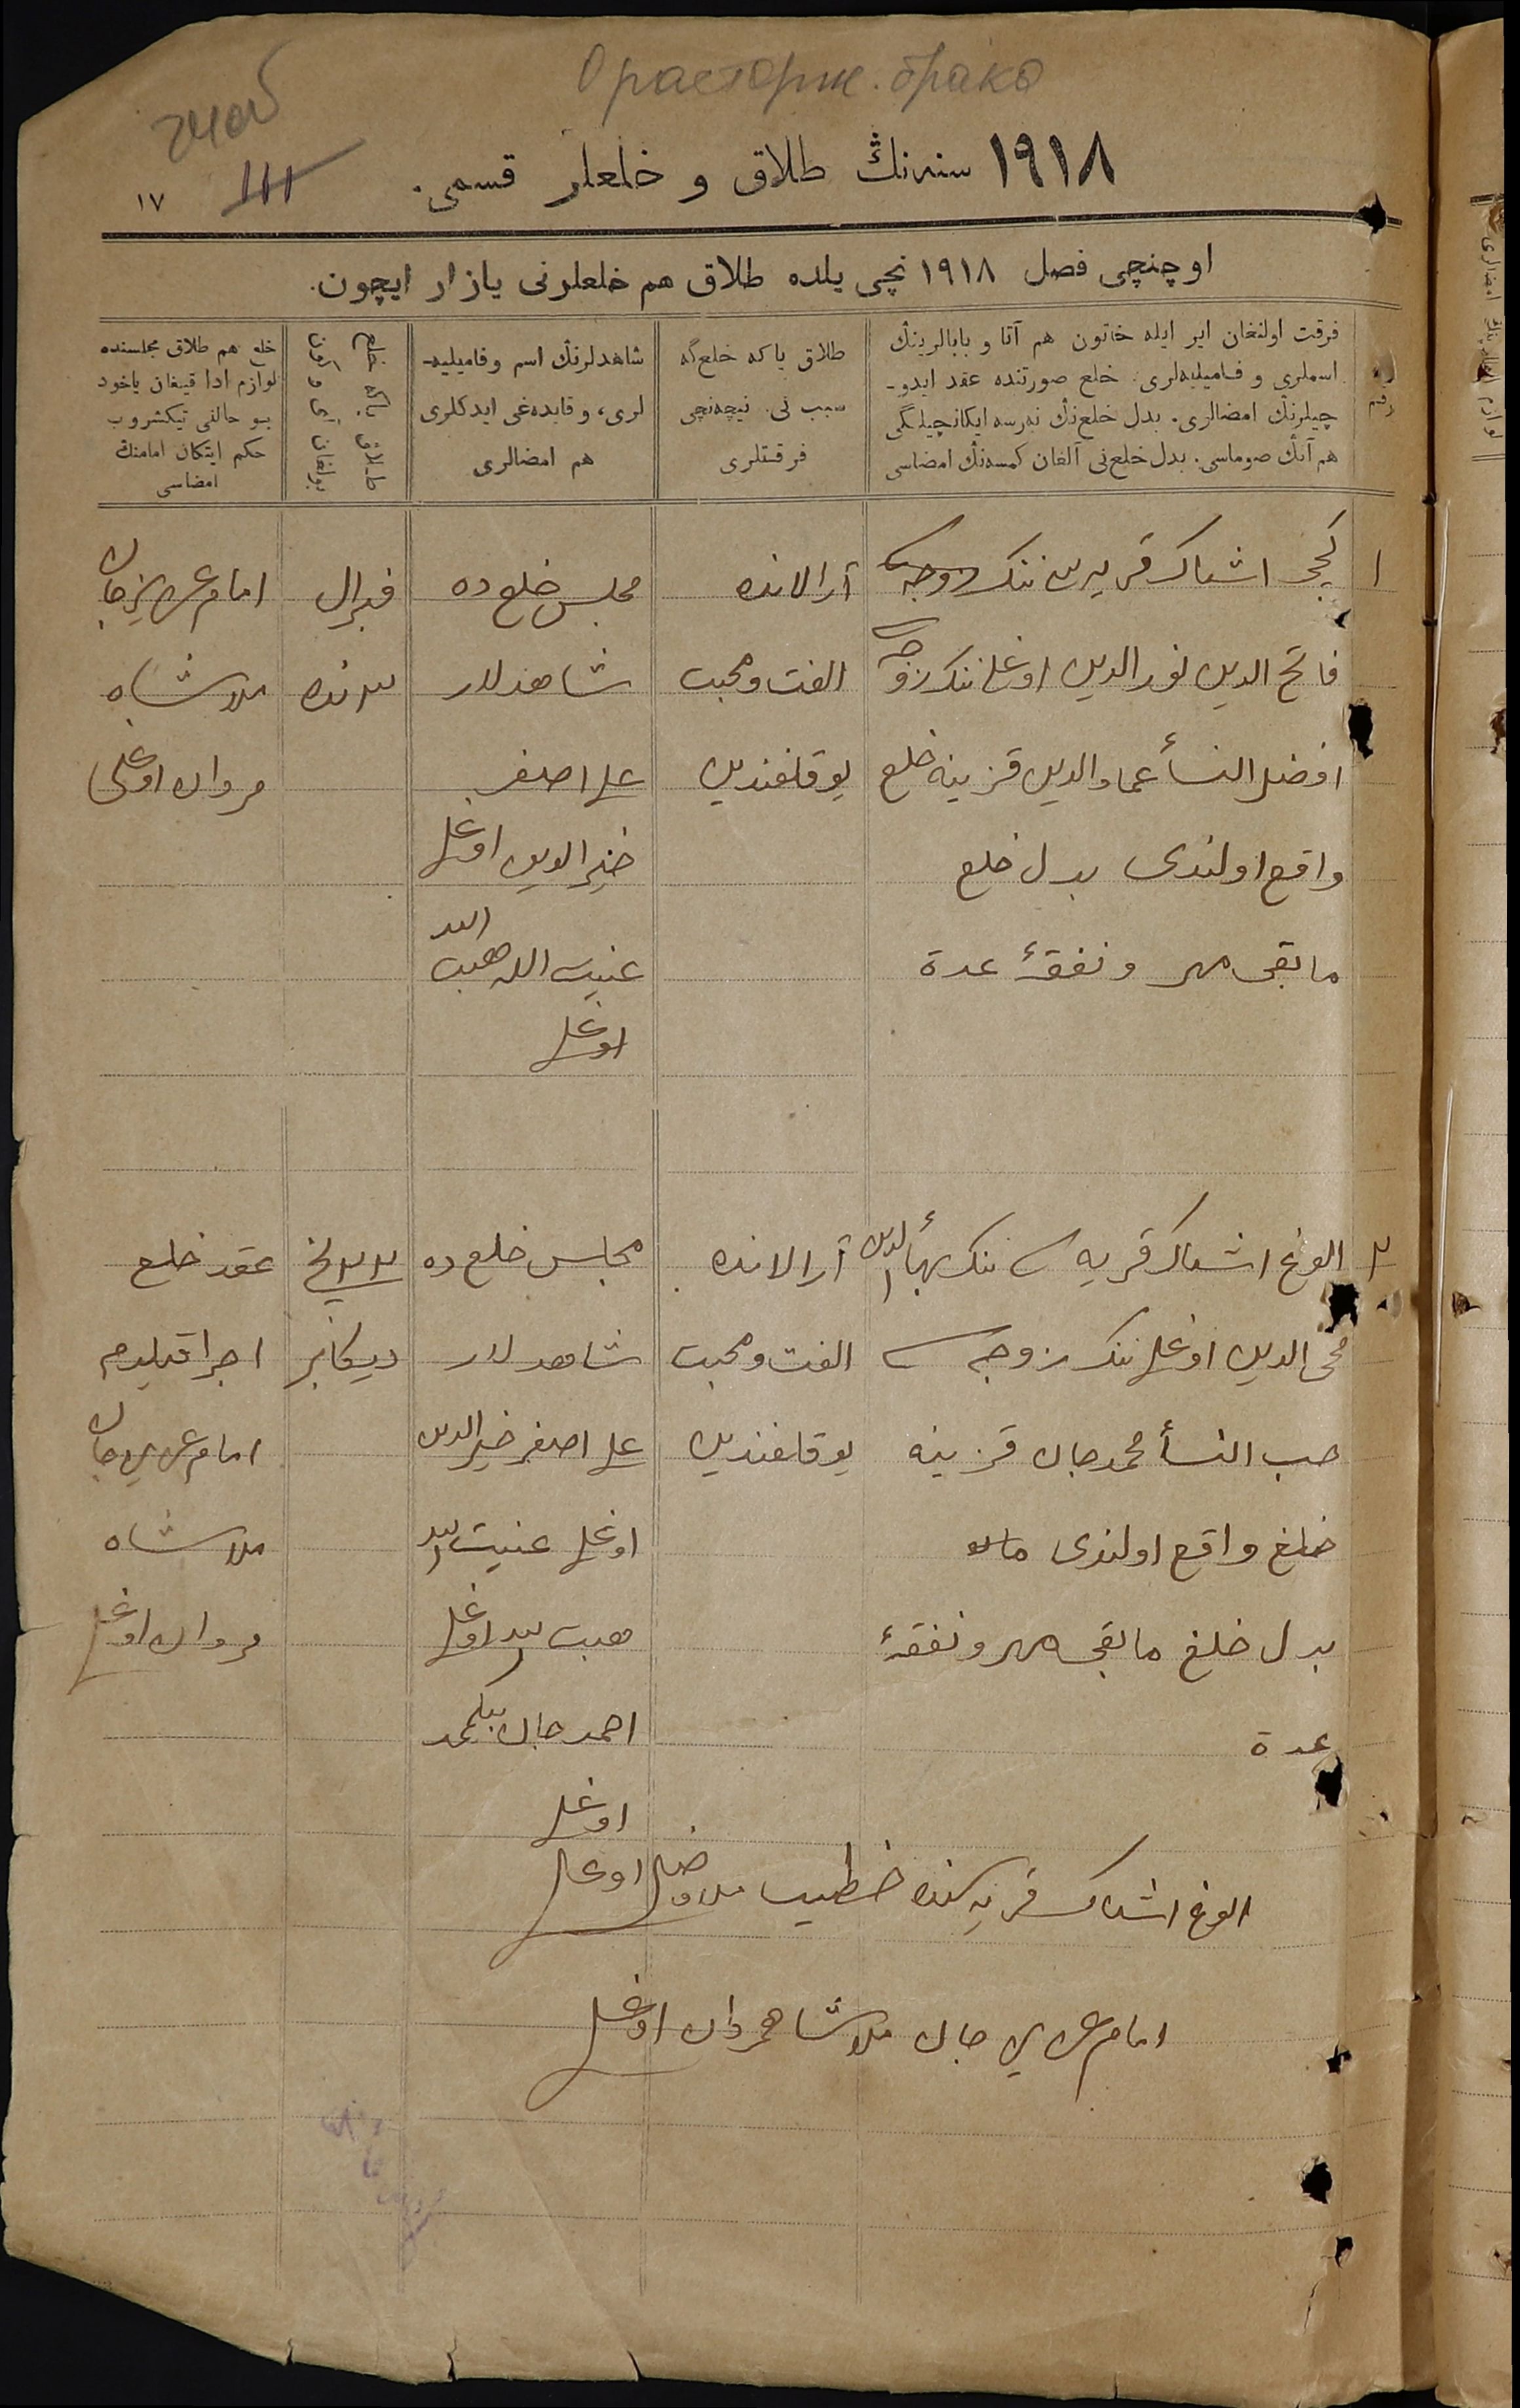 О расторж. брака
III
١٩١٨ سنه‌نڭ طلاق و خلعلر قسمی.
١٧
اوچنچی فصل ١٩١٨ نچی یلده طلاق هم خلعلرنی یازار ایچون.
رقم
فرقت اولنغان ایر ایله خاتون هم آتا و بابالرینڭ
اسملری و فامیلیه‌لری. خلع صورتنده عقد ایدو-
چیلرنڭ امضالری. بدل خلع‌نڭ نه‌رسه ایکانچیلگی
هم آنڭ صوماسی. بدل خلع‌نی آلغان کمسه‌نڭ امضاسی
طلاق یاکه خلع‌گه
سبب نی. نیچه‌نچی
فرقتلری
شاهدلرنڭ اسم و فامیلیه-
لری، و قایده‌غی ایدکلری
هم امضالری
طلاق یاکه خلع
بولغان آی و کون
خلع هم طلاق مجلسنده
لوازم ادا قیغان یاخود
بو حالنی تیکشروب
حکم ایتکان امامنڭ
امضاسی
١
کچی اشماک قریه سی ننک زوجه سی
فاتح الدین نور الدین اوغلی ننک زوجه سی
افضل النسأ عماد الدین قزینه خلع
واقع اولندی بدل خلع
مابقی مهر و نفقهٔ عدة
آرالارنده
الفت و محبت
یوقلغندین
مجلس خلع ده
شاهدلار
علی اصغر
خیر الدین اوغلی
عنیت الله هبت الله
اوغلی
فبرال
٣ نده
امام
ملا شاه
مروان اوغلی
٢
الوغ اشماک قریه سی ننک بهأ الدین
محی الدین اوغلی ننک زوجه سی
حب النسأ محمد جان قزینه
خلغ واقع اولندی
بدل خلغ مابقی مهر و نفقهٔ
عدة
آرالارنده
الفت و محبت
یوقلغندین
مجلس خلع ده
شاهدلار
علی اصغر خیر الدین
اوغلی عنیت الله
هبت الله اوغلی
احمد جان بیکمحمد
اوغلی
٢٣ نچی
دیکابر
عقد خلع
اجرا قیلدم
امام
ملا شاه
مروان اوغلی
الوغ اشماک قریه سنده خطیب ملا اوغلی
امام جان ملا شاهمروان اوغلی